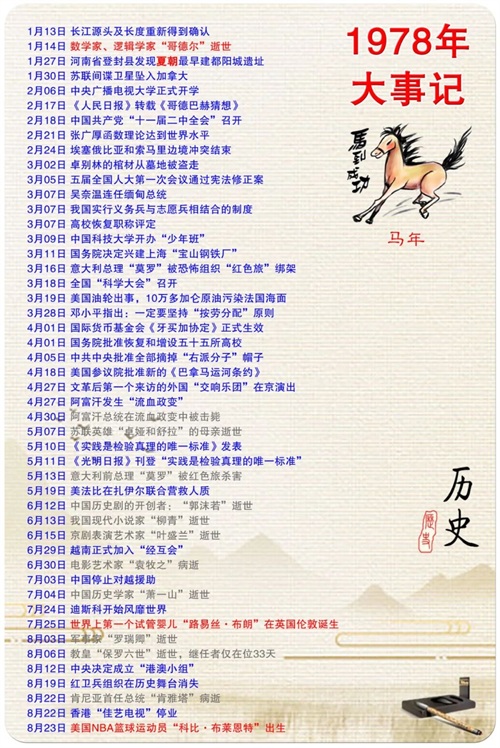 1978年
大事记
1月13日 长江源头及长度重新得到确认
1月14日 数学家、逻辑学家“哥德尔”逝世
1月27日 河南省登封县发现夏朝最早建都阳城遗址
1月30日 苏联间谍卫星坠入加拿大
2月06日 中央广播电视大学正式开学
2月17日 《人民日报》转载《哥德巴赫猜想》
2月18日 中国共产党“十一届二中全会”召开
2月21日 张广厚函数理论达到世界水平
2月24日 埃塞俄比亚和索马里边境冲突结束
3月02日 卓别林的棺材从墓地被盗走
3月05日 五届全国人大第一次会议通过宪法修正案
3月07日 吴奈温连任缅甸总统
3月07日 我国实行义务兵与志愿兵相结合的制度
3月07日 高校恢复职称评定
3月09日 中国科技大学开办“少年班”
3月11日 国务院决定兴建上海“宝山钢铁厂”
3月16日 意大利总理“莫罗”被恐怖组织“红色旅”绑架
3月18日 全国“科学大会”召开
3月19日 美国油轮出事，10万多加仑原油污染法国海面
3月28日 邓小平指出：一定要坚持“按劳分配”原则
4月01日 国际货币基金会《牙买加协定》正式生效
4月01日 国务院批准恢复和增设五十五所高校
4月05日 中共中央批准全部摘掉“右派分子”帽子
4月18日 美国参议院批准新的《巴拿马运河条约》
4月27日 文革后第一个来访的外国“交响乐团”在京演出
4月27日 阿富汗发生“流血政变”
4月30日 阿富汗总统在流血政变中被击毙
5月07日 苏联英雄“卓娅和舒拉”的母亲逝世
5月10日 《实践是检验真理的唯一标准》发表
5月11日 《光明日报》刊登“实践是检验真理的唯一标准”
5月13日 意大利前总理“莫罗”被红色旅杀害
5月19日 美法比在扎伊尔联合营救人质
6月12日 中国历史剧的开创者：“郭沫若”逝世
6月13日 我国现代小说家“柳青”逝世
6月15日 京剧表演艺术家“叶盛兰”逝世
6月29日 越南正式加入“经互会”
6月30日 电影艺术家“袁牧之”病逝
7月03日 中国停止对越援助
7月04日 中国历史学家“萧一山”逝世
7月24日 迪斯科开始风靡世界
7月25日 世界上第一个试管婴儿“路易丝·布朗”在英国伦敦诞生
8月03日 军事家“罗瑞卿”逝世
8月06日 教皇“保罗六世”逝世，继任者仅在位33天
8月12日 中央决定成立“港澳小组”
8月19日 红卫兵组织在历史舞台消失
8月22日 肯尼亚首任总统“肯雅塔”病逝
8月22日 香港“佳艺电视”停业
8月23日 美国NBA篮球运动员“科比·布莱恩特”出生
馬到成功
马年
历史